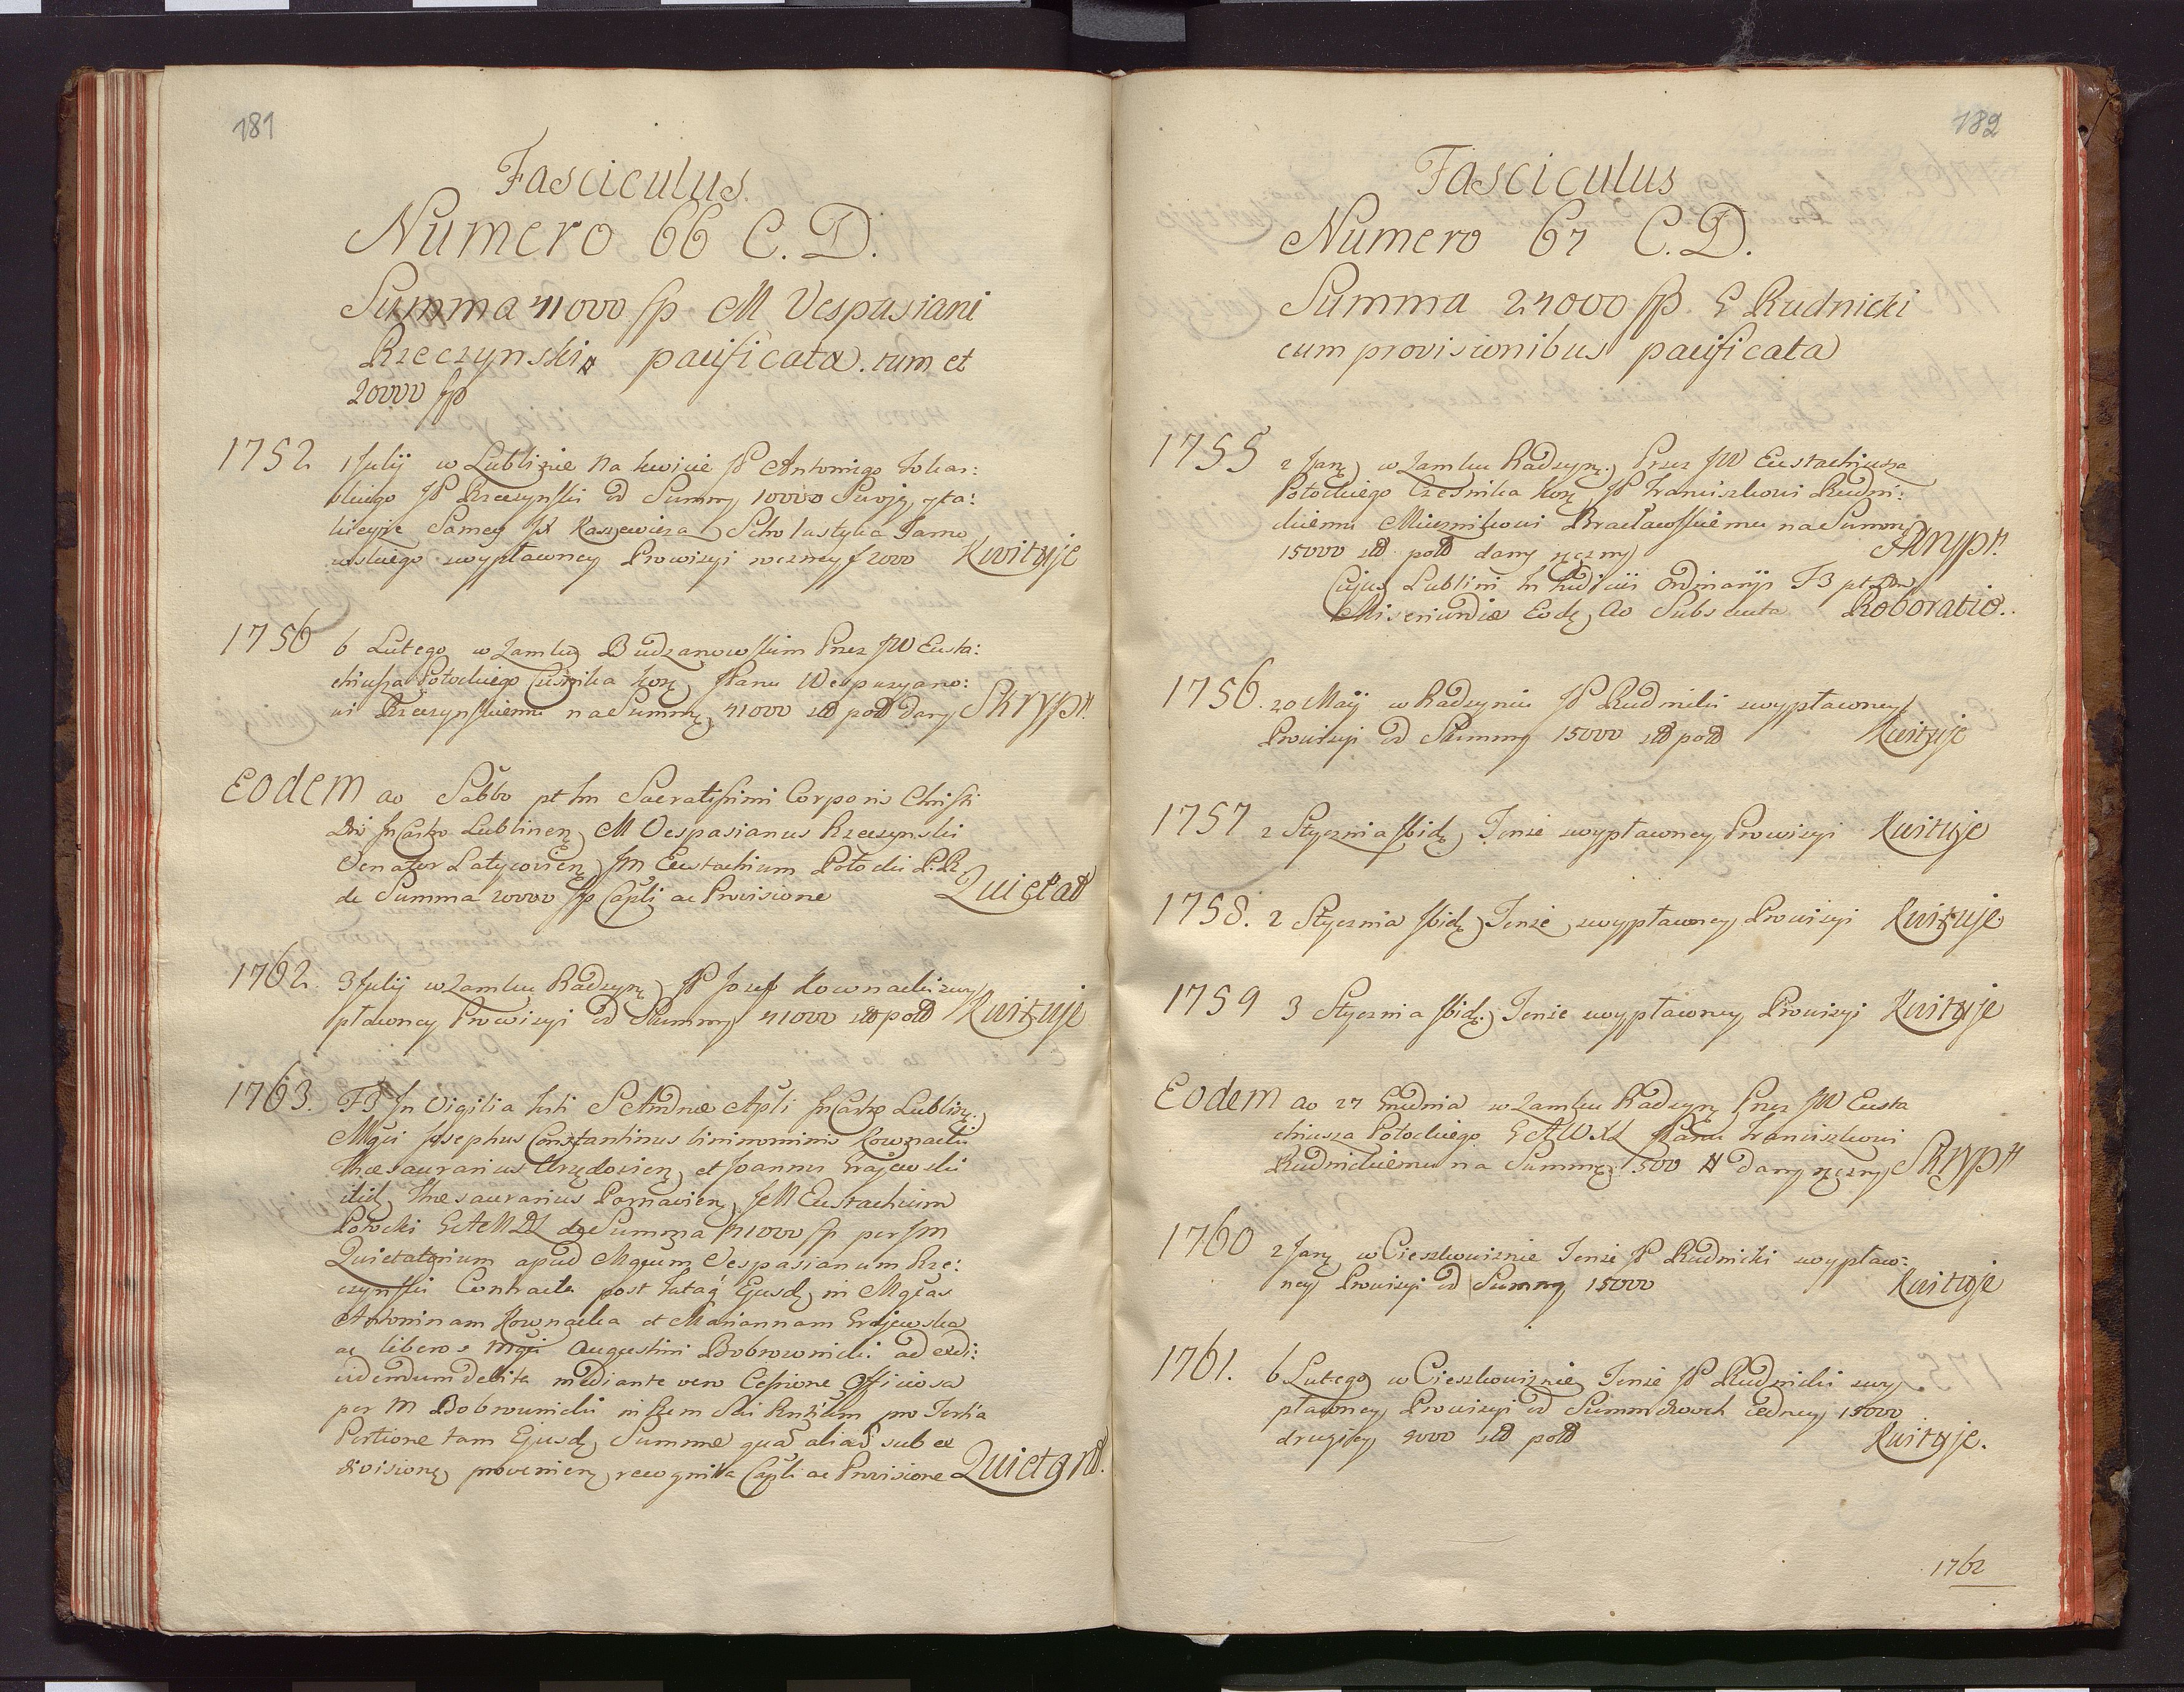 181
Fasciculus.
Numero 66 C. D.
Summa 41000 fp M Vespasiani
Rzeczynski pacificata. tum et
20000 fp
1752 1 Julij w Lublinie Na kwicie JP Antoniego
JP Rzeczynski od Summy 10000
Samey Kaszewicza Scholastyka Tarno
wskiego wypłaconey Prowizyi roczney f 2000 Kwituje
1756 6 Lutego w Zamku Budzanowskim Przez JW Eusta:
chiusza Potockiego Cześnika Kor JPanu Wespazyano:
wi Rzeczynskiemu na Summę 41000 złł poll dany Skrypt.
Eodem ao Sabbo pt fm Sacratissimi Corporis Christi
Dni In Castro Lublinen M Vespasianus Rzeczynski
Venator Latyczovien Im Eustachium Potocki P.R.
de Summa 20000 fp Capli ac Provisione Quietat
1762. 3 Julij w Zamku Radzyn JP Jozef Kownacki zwy
płaconey Prowizyi od Summy 41000 złł poll Kwituje
1763. F3 In Vigilia Festi S Andreæ Apli In Castro Lublin.
Mgci Josephus Constantinus binominis Kownacki
Thesaurarius Urzędovien et Joannes Grajewski
itid Thesaurarius Parnavien JeM Eustachium
Potocki GAMDL de Summa 41000 fp per Im
Quietatorium apud Mgcum Vespasianum Rze:
czynski Contracta post fata Ejusd in Mgcas
Antoninam Kownacka et Mariannam Grajewska
ac liberos Mgci Augustini Bobrownicki ad exdi:
videndum Delita mediante vero Cessione Officiosa
per M Bobrownicki in Rem pro Tertia
Portione tam Ejusd Summæ qua alias sub ex
divisione provenien recognita Capli ac Provisione Quietant.
182
Fasciculus
Numero 67 C. D.
Summa 24000 fp. G Rudnicki
cum provisionibus pacificata
1755 2 Jan w Zamku Radzyn. Przez JW Eustachiusza
Potockiego Cześnika Kor JP Franciszkowi Rudni:
ckiemu Miecznikowi Bracławskiemu na Summ
15000 złł poll dany ręczny Skrypt.
Cujus Lublini In Judiciis Ordinarijs F3 pt Dom
Misericordiæ Eod Ao Subsecuta Roboratio.
1756. 20 Maij w Radzyniu JP Rudnicki zwypłaconey
Prowizyi od Summy 15000 złł poll Kwituje
1757 2 Stycznia Ibid Tenże zwypłaconey Prowizyi Kwituje
1758. 2 Stycznia Ibid Tenże zwypłaconey Prowizyi Kwituje
1759 3 Stycznia Ibid Tenże zwypłaconey Prowizyi Kwituje
Eodem ao 27 Grudnia w Zamku Radzyn Przez JW Eusta
chiusza Potockiego GAWXL JPanu Franciszkowi
Rudnickiemu na Summę 500 # Dany ręczny Skrypt
1760 2 Jan w Cieszkowiznie Tenże JP Rudnicki zwypłaco:
ney Prowizyi od Summy 15000 Kwituje
1761. 6 Lutego w Cieszkowiznie Tenże JP Rudnicki zwy
płaconey Prowizyi od Summ dwoch iedney 15000
drugiey 9000 złł poll Kwituje.
1762